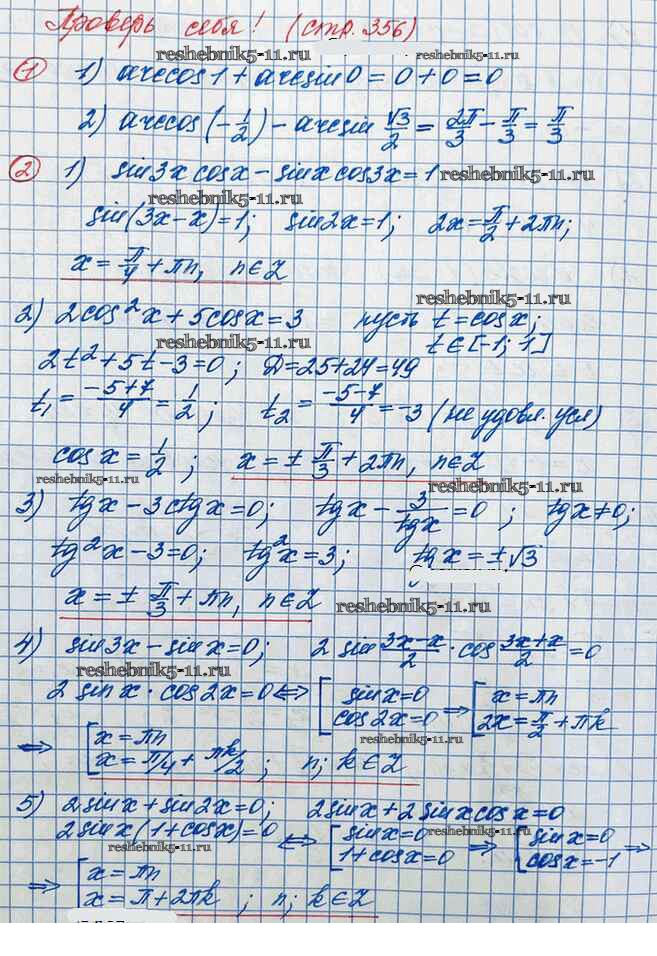 Проверь себя! (стр. 356)
reshebnik5-11.ru
1 1) arccos 1 + arcsin 0 = 0 + 0 = 0
2) arccos (-1/2) - arcsin √3/2 = 2π/3 - π/3 = π/3
2 1) sin 3x cos x - sin x cos 3x = 1 reshebnik5-11.ru
reshebnik5-11.ru
sin(3x-x)=1; sin2x=1; 2x=π/2+2πn;
x = π/4 + πn, n∈Z
reshebnik5-11.ru
2) 2cos²x + 5cosx = 3 пусть t = cosx;
reshebnik5-11.ru
t∈[-1; 1]
2t²+5t-3=0; D=25+24=49
t₁ = (-5+7)/4 = 1/2; t₂ = (-5-7)/4 = -3 (не удовл. усл)
cos x = 1/2; x = ± π/3 + 2πn, n∈Z
reshebnik5-11.ru reshebnik5-11.ru
3) tgx - 3ctgx = 0; tgx - 3/tgx = 0; tgx≠0;
reshebnik5-11.ru
tg²x - 3 = 0; tg²x = 3; tgx = ±√3
x = ± π/3 + πn, n∈Z reshebnik5-11.ru
4) sin3x - sinx = 0; 2 sin (3x-x)/2 · cos (3x+x)/2 = 0
reshebnik5-11.ru
2 sin x · cos 2x = 0 ⟺ [ sinx = 0 ⟹ [ x = πn
cos2x = 0 2x = π/2 + πk
reshebnik5-11.ru
⟹ [ x = πn
x = π/4 + πk/2; n; k∈Z
5) 2sinx + sin2x = 0; 2sinx + 2sinxcosx = 0
2sinx(1+cosx)=0 ⟺ [ sinx=0 reshebnik5-11.ru ⟹ [ sinx=0 ⟹
reshebnik5-11.ru 1+cosx=0 cosx=-1
⟹ [ x = πn
x = π + 2πk; n; k∈Z
reshebnik5-11.ru